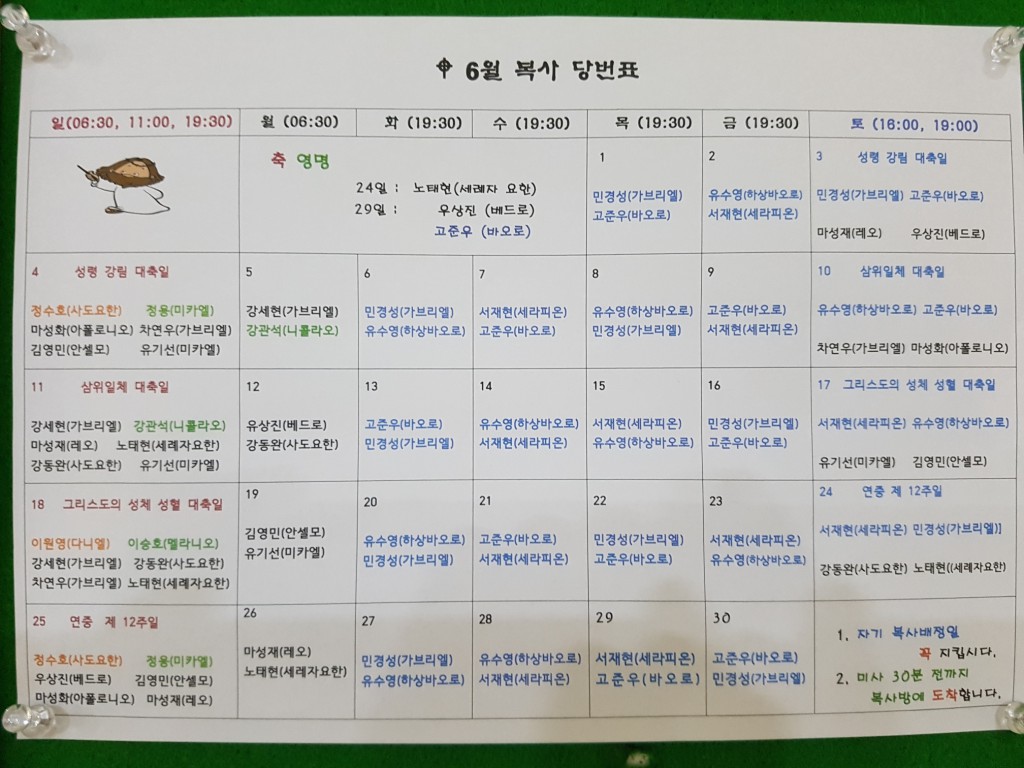 6월 복사 당번표
일(06:30, 11:00, 19:30) 월 (06:30) 화 (19:30) 수 (19:30) 목 (19:30) 금 (19:30) 토 (16:00, 19:00)
축 영명
24일 : 노태현(세례자 요한)
29일 : 우상진 (베드로)
고준우 (바오로)
1
민경성(가브리엘)
고준우(바오로)
2
유수영(하상바오로)
서재현(세라피온)
3 성령 강림 대축일
민경성(가브리엘) 고준우(바오로)
마성재(레오) 우상진(베드로)
4 성령 강림 대축일
정수호(사도요한) 정용(미카엘)
마성화(아폴로니오) 차연우(가브리엘)
김영민(안셀모) 유기선(미카엘)
5
강세현(가브리엘)
강관석(니콜라오)
6
민경성(가브리엘)
유수영(하상바오로)
7
서재현(세라피온)
고준우(바오로)
8
유수영(하상바오로)
민경성(가브리엘)
9
고준우(바오로)
서재현(세라피온)
10 삼위일체 대축일
유수영(하상바오로) 고준우(바오로)
차연우(가브리엘) 마성화(아폴로니오)
11 삼위일체 대축일
강세현(가브리엘) 강관석(니콜라오)
마성재(레오) 노태현(세례자요한)
강동완(사도요한) 유기선(미카엘)
12
유상진(베드로)
강동완(사도요한)
13
고준우(바오로)
민경성(가브리엘)
14
유수영(하상바오로)
서재현(세라피온)
15
서재현(세라피온)
유수영(하상바오로)
16
민경성(가브리엘)
고준우(바오로)
17 그리스도의 성체 성혈 대축일
서재현(세라피온) 유수영(하상바오로)
유기선(미카엘) 김영민(안셀모)
18 그리스도의 성체 성혈 대축일
이원영(다니엘) 이승호(멜라니오)
강세현(가브리엘) 강동완(사도요한)
차연우(가브리엘) 노태현(세례자요한)
19
김영민(안셀모)
유기선(미카엘)
20
유수영(하상바오로)
민경성(가브리엘)
21
고준우(바오로)
서재현(세라피온)
22
민경성(가브리엘)
고준우(바오로)
23
서재현(세라피온)
유수영(하상바오로)
24 연중 제 12주일
서재현(세라피온) 민경성(가브리엘)]
강동완(사도요한) 노태현((세례자요한)
25 연중 제 12주일
정수호(사도요한) 정용(미카엘)
우상진(베드로) 김영민(안셀모)
마성화(아폴로니오) 마성재(레오)
26
마성재(레오)
노태현(세례자요한)
27
민경성(가브리엘)
유수영(하상바오로)
28
유수영(하상바오로)
서재현(세라피온)
29
서재현(세라피온)
고준우(바오로)
30
고준우(바오로)
민경성(가브리엘)
1. 자기 복사배정일
꼭 지킵시다.
2. 미사 30분 전까지
복사방에 도착합니다.